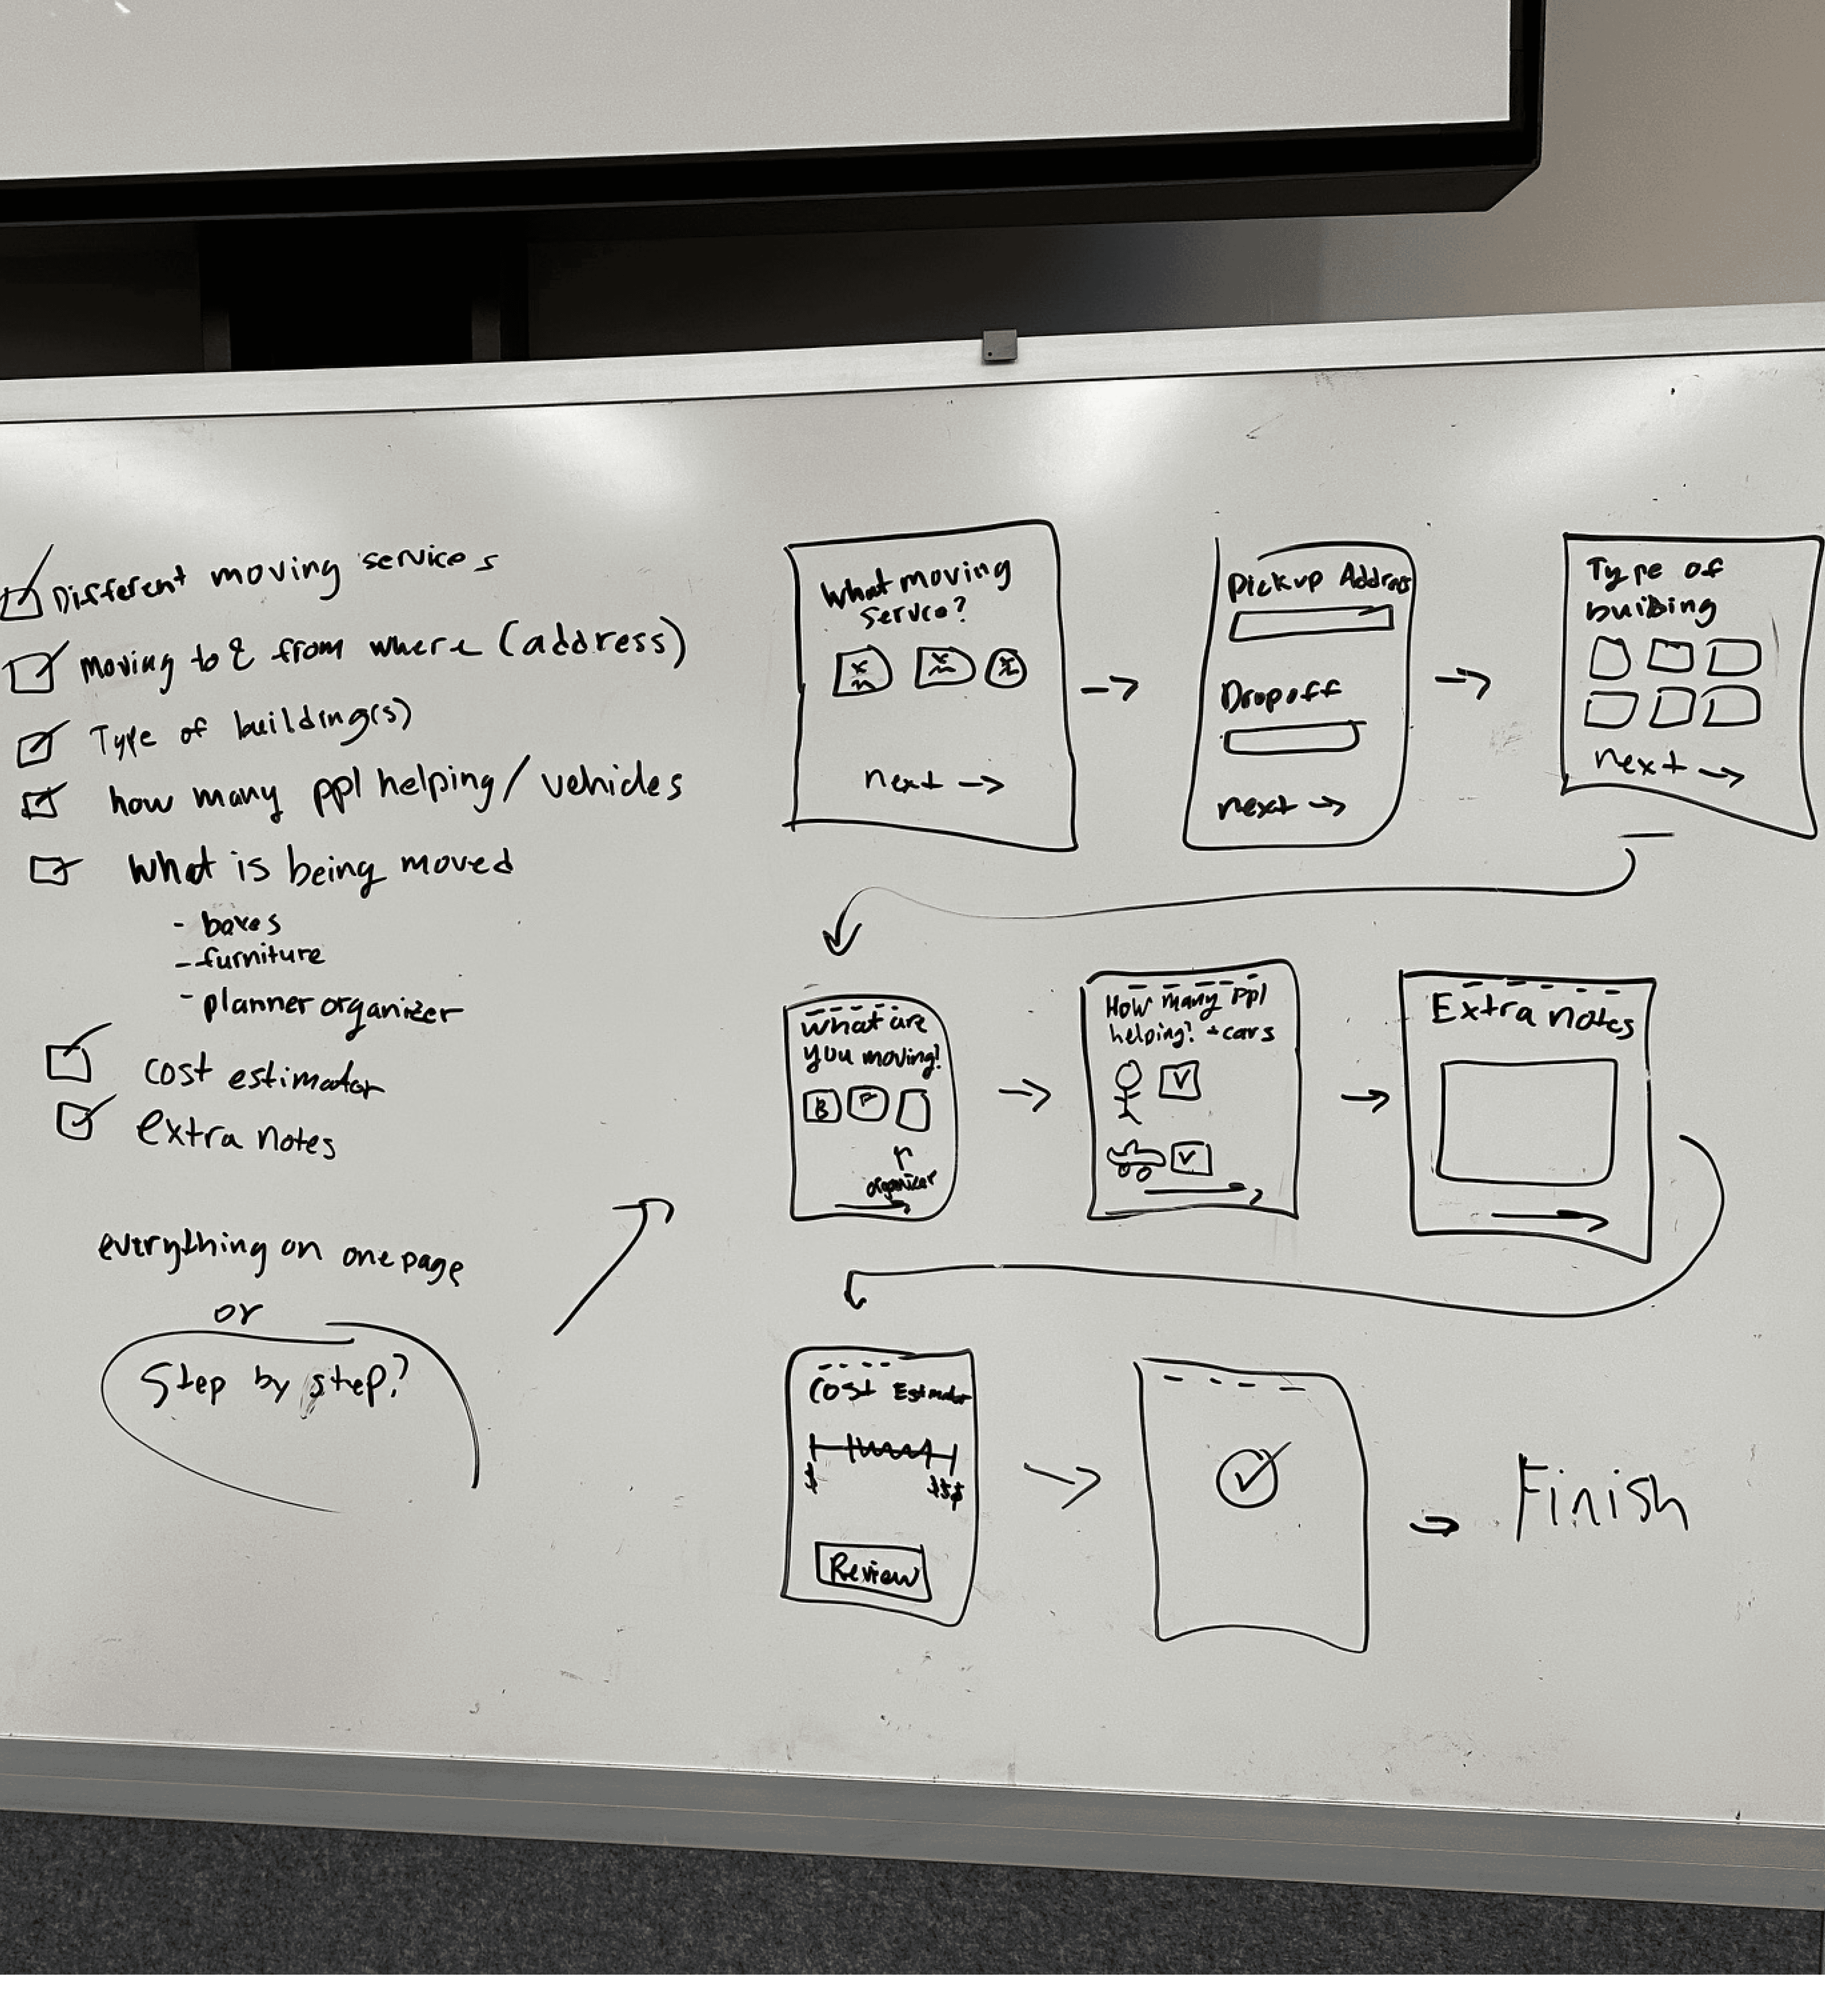 Different moving services
moving to & from where (address)
Type of building(s)
how many ppl helping/vehicles
What is being moved
- boxes
- furniture
- planner organizer
cost estimator
extra notes
everything on one page
or
Step by step?
What moving
service?
next →
Pickup Address
Dropoff
next →
Type of
building
next →
What are
you moving?
B F
organizer
How many ppl
helping? + cars
Extra notes
Cost Estimator
$ $$$
Review
Finish